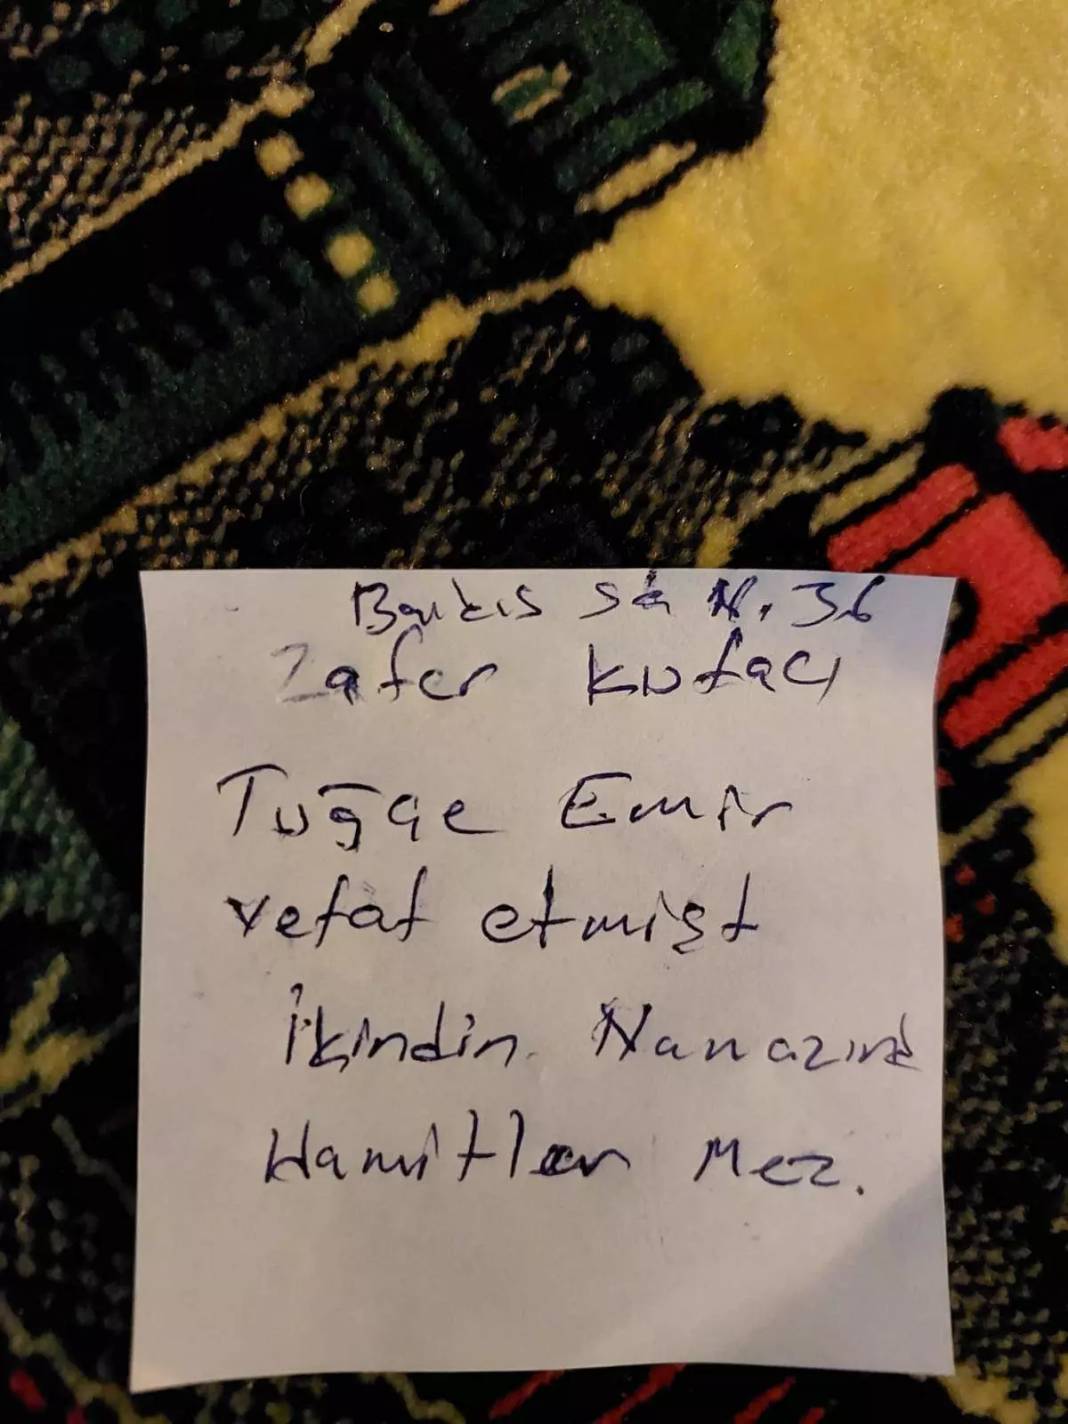 sk N. 36
Zafer Kufacı
Tuğçe Emir
vefat etmişt
İkindin Namazınd
Hamitler Mez.